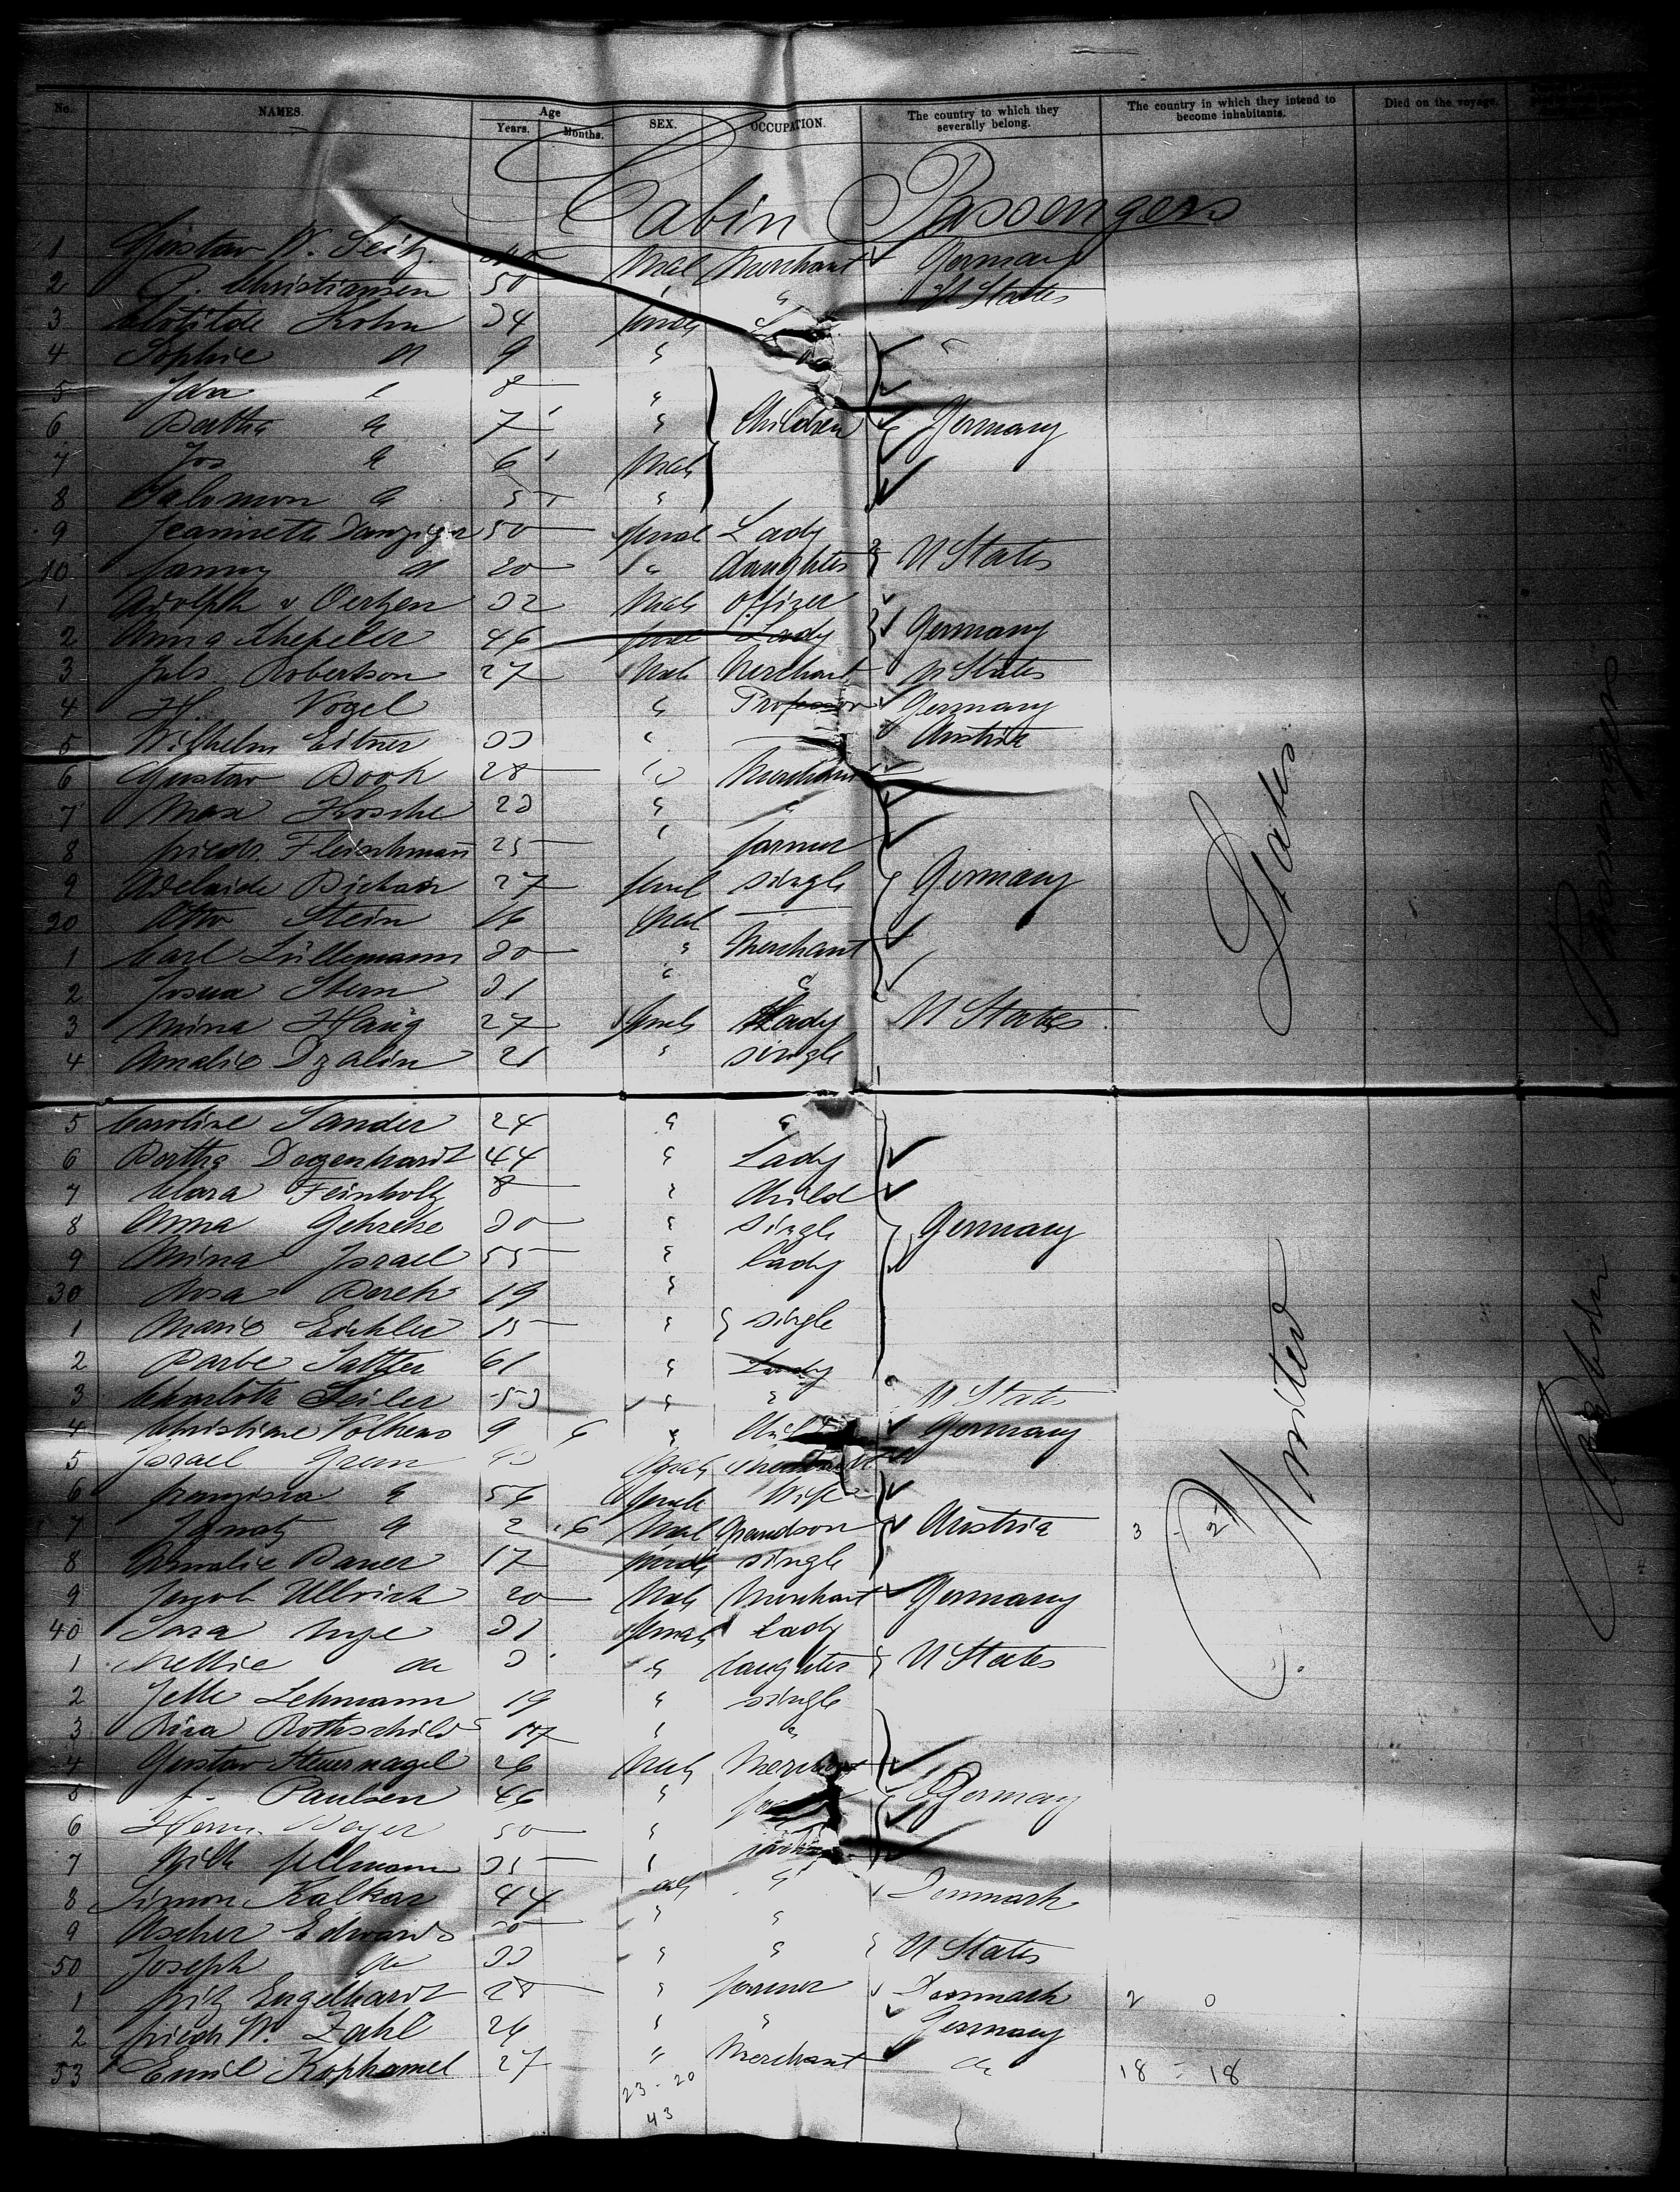 No. NAMES. Age Years. Months. SEX. OCCUPATION. The country to which they severally belong. The country in which they intend to become inhabitants. Died on the voyage.
Cabin Passengers
1 Gustav W. Seitz Male Merchant Germany
2 Christiansen 50 " " U States
3 Clotilde Kohn 34 female
4 Sophie do 9 "
5 8 "
6 Bertha do 7 " Children Germany
7 Jos do 6 Male
8 Salomon do 5 "
9 Jeannette Danziger 50 female Lady
10 Fanny do 20 " daughter U States
1 Adolph v Oertzen 32 Male Offizer
2 Anna Schepeler 46 female Lady Germany
3 Juls. Robertson 27 Male Merchant U States
4 H. Vogel " Professor Germany
5 Wilhelm Eitner 33 " Austria
6 Gustav Book 28 " Merchant
7 Max Kosche 23 " "
8 Friedr. Fleischmann 25 " farmer
9 Adelaide 27 female single Germany
20 Otto Stein 16 Male
1 Carl Lüllemann 30 " Merchant
2 Josua Stern 31 " "
3 Mina Haug 27 female Lady U States
4 Amalie 21 " single
5 Caroline Sander 24 " "
6 Bertha Degenhardt 44 " Lady
7 Clara Feinholz 8 " Child
8 Anna Gehrcke 30 " single Germany
9 Mina Israel 55 " Lady
30 Rosa 19 "
1 Marie Eichler 15 " single
2 Barbe Sattler 61 " Lady
3 Charlotte Seiler 53 " " U States
4 Christiane Volkens 9 6 " Child Germany
5 Israel Male
6 Franziska do 56 female Wife
7 Ignatz do 2 6 Male Grandson Austria 3 - 2
8 Amalie Bauer 17 female single
9 Jacob Ullrich 20 Male Merchant Germany
40 Sara Nye 31 female Lady
1 Nellie do 3 " daughter U States
2 Jette Lehmann 19 " single
3 Rosa Rothschild 17 " "
4 Gustav Steuernagel 26 Male Merchant
5 Paulsen 46 " Germany
6 Herm. Beyer 50 "
7 35 "
8 Simon Kalkar 44 " Denmark
9 Ascher Edwards " "
50 Joseph do 33 " " U States
1 Fritz Engelhardt 28 " farmer Denmark 2 0
2 Friedr W. Zahl 26 " " Germany
53 Emil Kophamel 27 " Merchant do 18 = 18
23 - 20
43
United States
Passengers